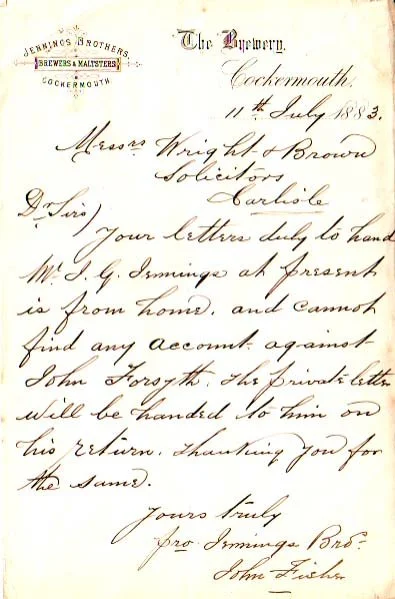 JENNINGS BROTHERS,
BREWERS & MALTSTERS
COCKERMOUTH
The Brewery,
Cockermouth.
11th July 1883.
Messrs Wright & Brown
Solicitors
Carlisle
Dr Sirs)
Your letters duly to hand
Mr. J. G. Jennings at present
is from home. and cannot
find any account. against
John Forsyth. The private letter
will be handed to him on
his return. Thanking you for
the same.
Yours truly
pro Jennings Bros.
John Fisher